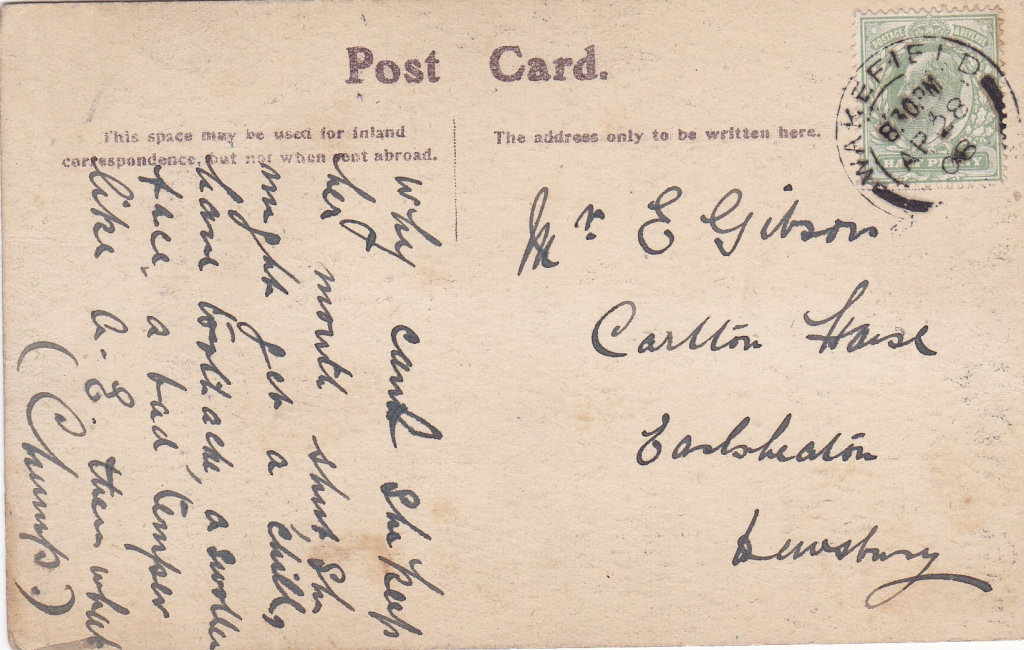 Post Card.
This space may be used for inland
correspondence, but not when sent abroad.
The address only to be written here.
POSTAGE & REVENUE
HALFPENNY
WAKEFIELD
8.30 PM
AP 28
08
Mr. E Gibson
Carlton House
Earlsheaton
Dewsbury
Why cant she keep
her mouth shut she
might get a chill,
have toothache, a swollen
face, a bad temper
like A. E. then what
(Chump?)